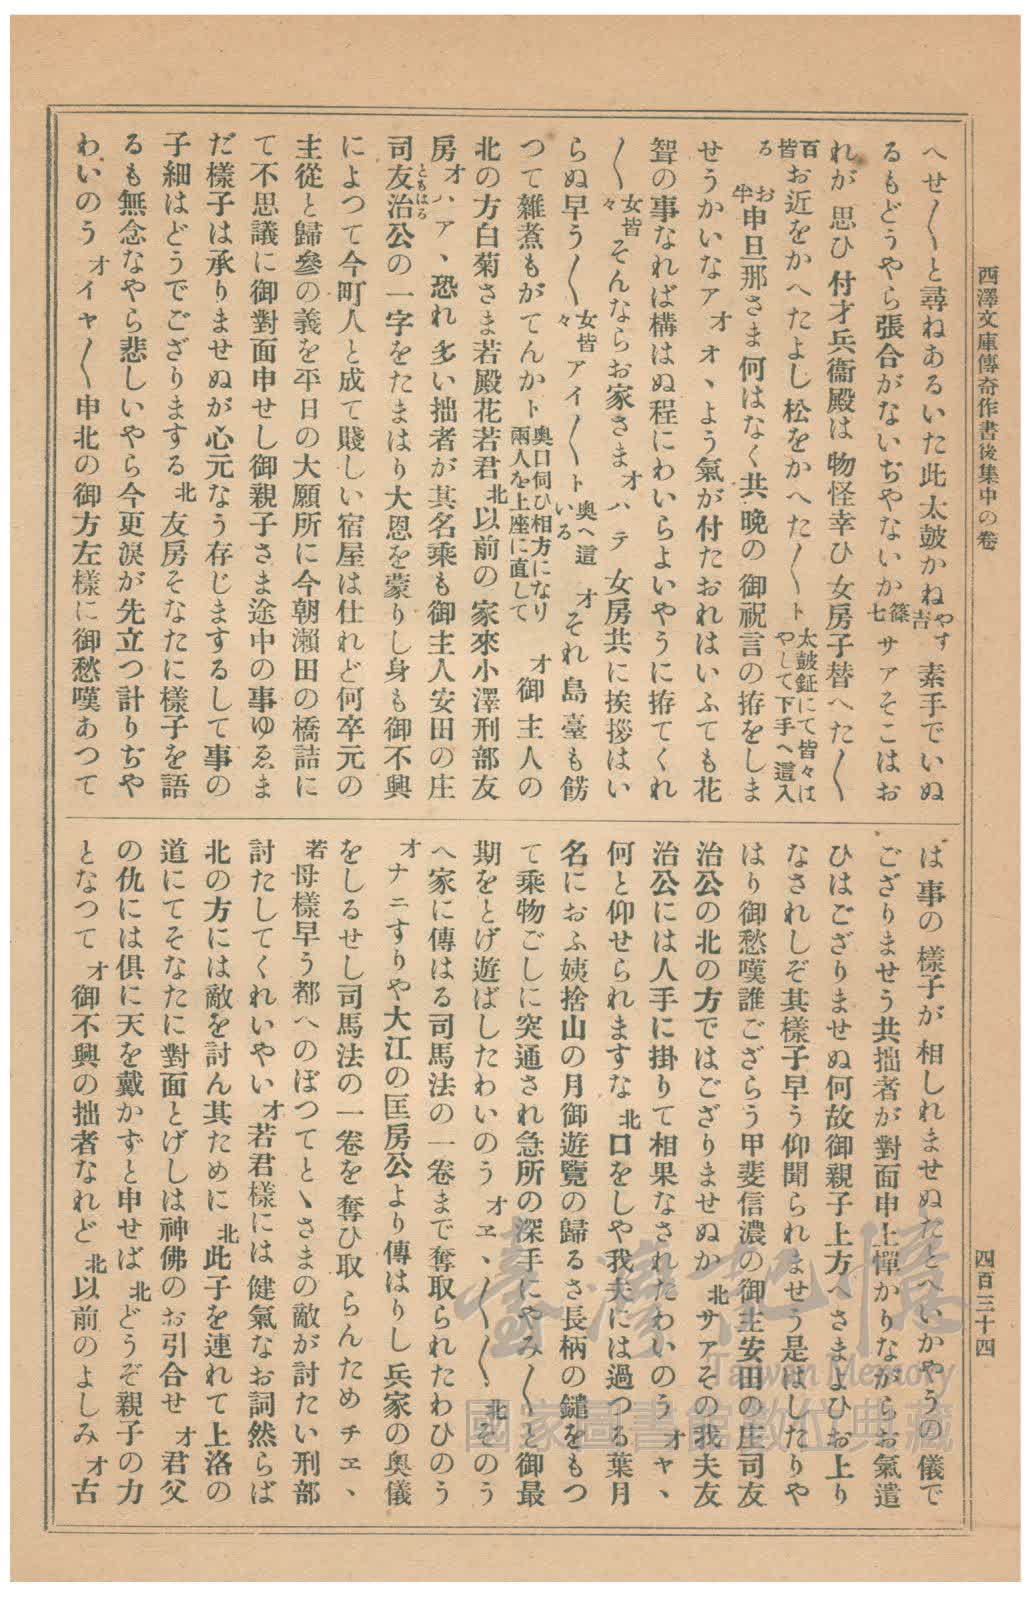 西澤文庫傳奇作書後集中の卷
四百三十四
へせ〳〵と尋ねあるいた此太鼓かねやす吉素手でいぬ
るもどうやら張合がないぢやないか篠七サアそこはお
れが思ひ付才兵衞殿は物怪幸ひ女房子替へた〳〵
百皆お近をかへたよし松をかへた〳〵ト太鼓鉦にて皆々はやして下手へ這入
るお半申旦那さま何はなく共晩の御祝言の拵をしま
せうかいなアオオヽよう氣が付たおれはいふても花
聟の事なれば構はぬ程にわいらよいやうに拵てくれ
〳〵女皆々そんならお家さまオハテ女房共に挨拶はい
らぬ早う〳〵女皆々アイ〳〵ト奧へ這いるオそれ島臺も餝
つて雜煮もがてんかト奧口伺ひ相方になり兩人を上座に直してオ御主人の
北の方白菊さま若殿花若君北以前の家來小澤刑部友
房オハアヽ恐れ多い拙者が其名乘も御主人安田の庄
司友治ともはる公の一字をたまはり大恩を蒙りし身も御不興
によつて今町人と成て賤しい宿屋は仕れど何卒元の
主從と歸參の義を平日の大願所に今朝瀨田の橋詰に
て不思議に御對面申せし御親子さま途中の事ゆゑま
だ樣子は承りませぬが心元なう存じまするして事の
子細はどうでござりまする北友房そなたに樣子を語
るも無念なやら悲しいやら今更淚が先立つ計りぢや
わいのうオイヤ〳〵申北の御方左樣に御愁嘆あつて
は事の樣子が相しれませぬたとへいかやうの儀で
ござりませう共拙者が對面申上憚かりながらお氣遣
ひはござりませぬ何故御親子上方へさまよひお上り
なされしぞ其樣子早う仰聞られませう是はしたりや
はり御愁嘆誰ござらう甲斐信濃の御主安田の庄司友
治公の北の方ではござりませぬか北サアその我夫友
治公には人手に掛りて相果なされたわいのうオヤヽ
何と仰せられますな北口をしや我夫には過つる葉月
名におふ姨捨山の月御遊覽の歸るさ長柄の鑓をもつ
て乘物ごしに突通され急所の深手にやみ〳〵と御最
期をとげ遊ばしたわいのうオヱヽ〳〵〳〵北そのう
へ家に傳はる司馬法の一卷まで奪取られたわひのう
オナニすりや大江の匡房公より傳はりし兵家の奧儀
をしるせし司馬法の一卷を奪ひ取らんためチヱヽ
若母樣早う都へのぼつてとゝさまの敵が討たい刑部
討たしてくれいやいオ若君樣には健氣なお詞然らば
北の方には敵を討ん其ために北此子を連れて上洛の
道にてそなたに對面とげしは神佛のお引合せオ君父
の仇には倶に天を戴かずと申せば北どうぞ親子の力
となつてオ御不興の拙者なれど北以前のよしみオ古
臺灣記憶
Taiwan Memory
國家圖書館數位典藏